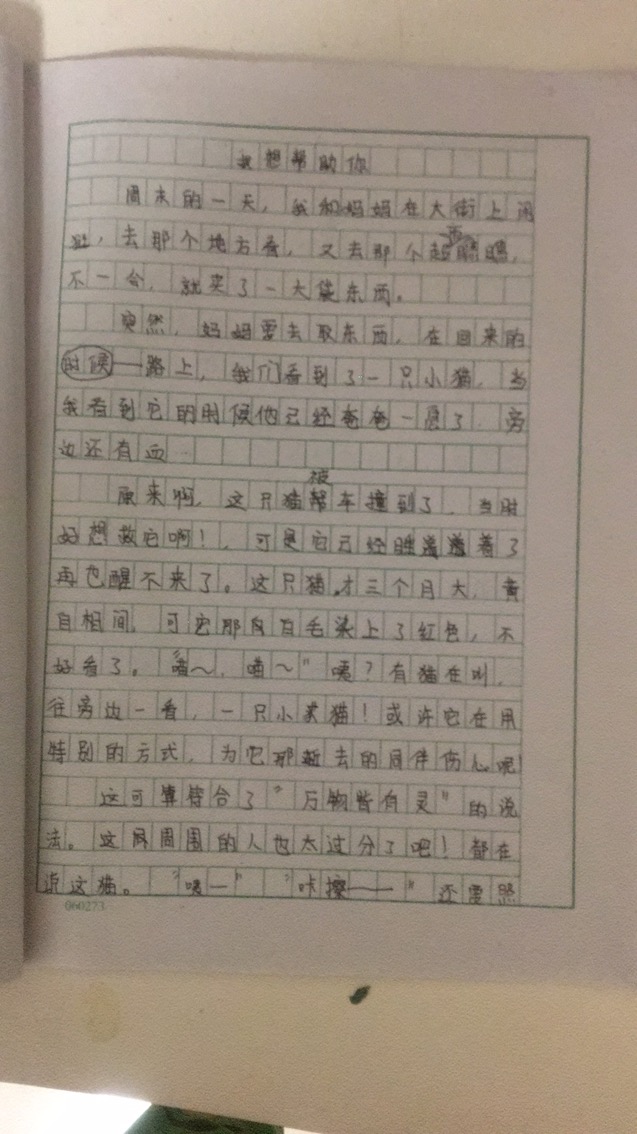 我想帮助你
周末的一天，我和妈妈在大街上闲
逛，去那个地方看，又去那个超
不一会，就买了一大袋东西。
突然，妈妈要去取东西，在回来的
时候——路上，我们看到了一只小猫，当
我看到它的时候他已经奄奄一息了，旁
边还有血…
被
原来啊，这只猫帮车撞到了，当时
好想救它啊！，可是它已经睡着了
再也醒不来了。这只猫，才三个月大，黄
白相间，可它那身白毛染上了红色，不
好看了。“喵～，喵～”咦？有猫在叫，
往旁边一看，一只小猫！或许它在用
特别的方式，为它那逝去的同伴伤心呢！
这可算符合了“万物皆有灵”的说
法。这周围的人也太过分了吧！都在
说这猫。“咦—”“咔擦——”还要照
060273